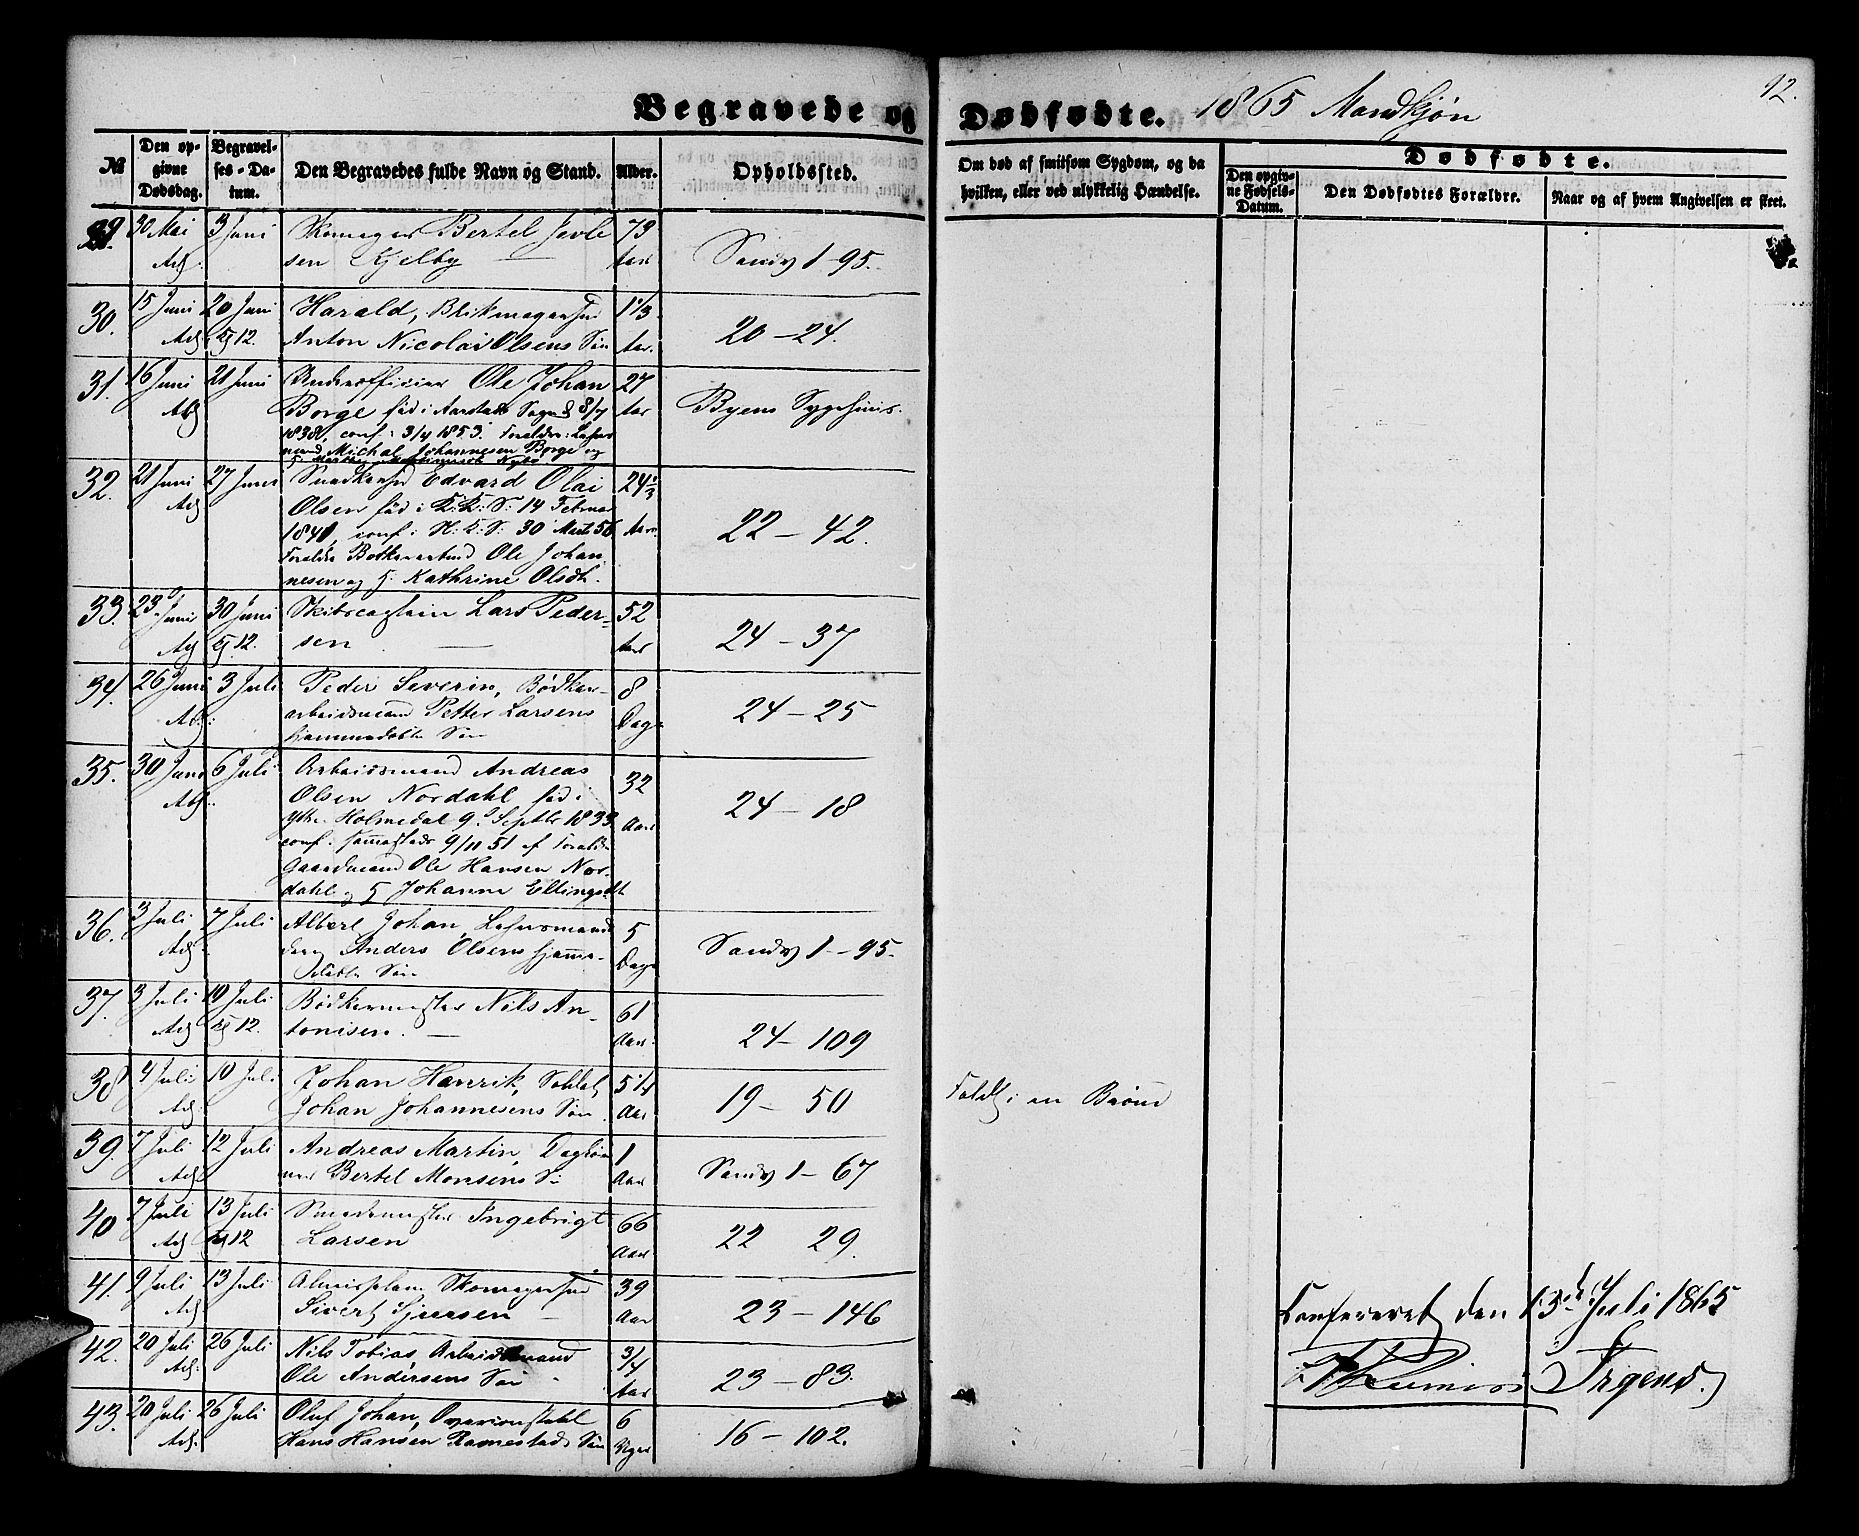 Begravede og Dødfødte. 1865 Mandkjøn
92.
№
Den opgivne Dødsdag.
Begravelses-Datum.
Den Begravedes fulde Navn og Stand.
Alder.
Opholdssted.
Om død af smitsom Sygdom, og da hvilken, eller ved ulykkelig Hændelse.
Dødfødte.
Den opgivne Fødsels-Datum.
Den Dødfødtes Forældre.
Naar og af hvem Angivelsen er skeet.
29. 30 Mai 3 Juni Skomager Bertel 73
sen Kjelby Aar Sandv 1-95.
30. 15 Juni 20 Juni Harald, 1 1/3
12. Anton Nicolai Olsens Søn Aar. 20-24.
31. 16 Juni 21 Juni Underofficier Ole Johan 27
Borge fød i Aarstads Sogn d 8/7 Aar Byens Sygehuus.
1838, conf: 3/4 1853. Forældre:
Michal Johannesen Borge og
32. 21 Juni 27 Juni Edvard Olai 24 1/3
Olsen fød i K:K:S: 14 Februar
1841, conf: i N: K: S: 30 Marts 56 Aar 22-42.
Ole Johan
nesen og Kathrine Olsdt.
33. 23 Juni 30 Juni Skibscaptain Lars Peder- 52
12. sen Aar 24-37
34. 26 Juni 3 Juli Peder Severin, Bødker- 8
arbeidsmand Petter Larsens Dage 24-25
hjemmedøbte Søn
35. 30 Juni 6 Juli Arbeidsmand Andreas 32
Olsen Nordahl fød i
Ytre Holmedal 9. Septbr 1833 Aar 24-18
conf: 9/11 51 af Forældre
Gaardmand Ole Hansen Nor-
dahl og Johanne Ellingsdt
36. 3 Juli 7 Juli Albert Johan, 5
Anders Olsens hjemme- Dage Sandv 1-95.
døbte Søn
37. 3 Juli 10 Juli Bødkermester Nils An- 61
12. tonisen. Aar 24-109
38 4 Juli 10 Juli Johan Henrik, Soldat 5 1/4
Johan Johannesens Søn. Aar 19-50 Faldt i en Brønd
39. 7 Juli 12 Juli Andreas Martin, Dagløn 1
ner Bertel Monsens Sn Aar Sandv 1-67
40 7 Juli 13 Juli Smedemester Ingebrigt 66
12 Larsen Aar 22 29.
41. 9 Juli 13 Juli Almisselem Skomagersvd 39
Sivert Sjursen Aar 23-146
42. 20 Juli 26 Juli Nils Tobias, Arbeidsmand 3/4
Ole Andersens Søn Aar 23-83.
43. 20 Juli 26 Juli Oluf Johan, 6
Hans Hansen Ramestads Søn Uger 16-102.
Confereret den 13d Juli 1865
Irgens.